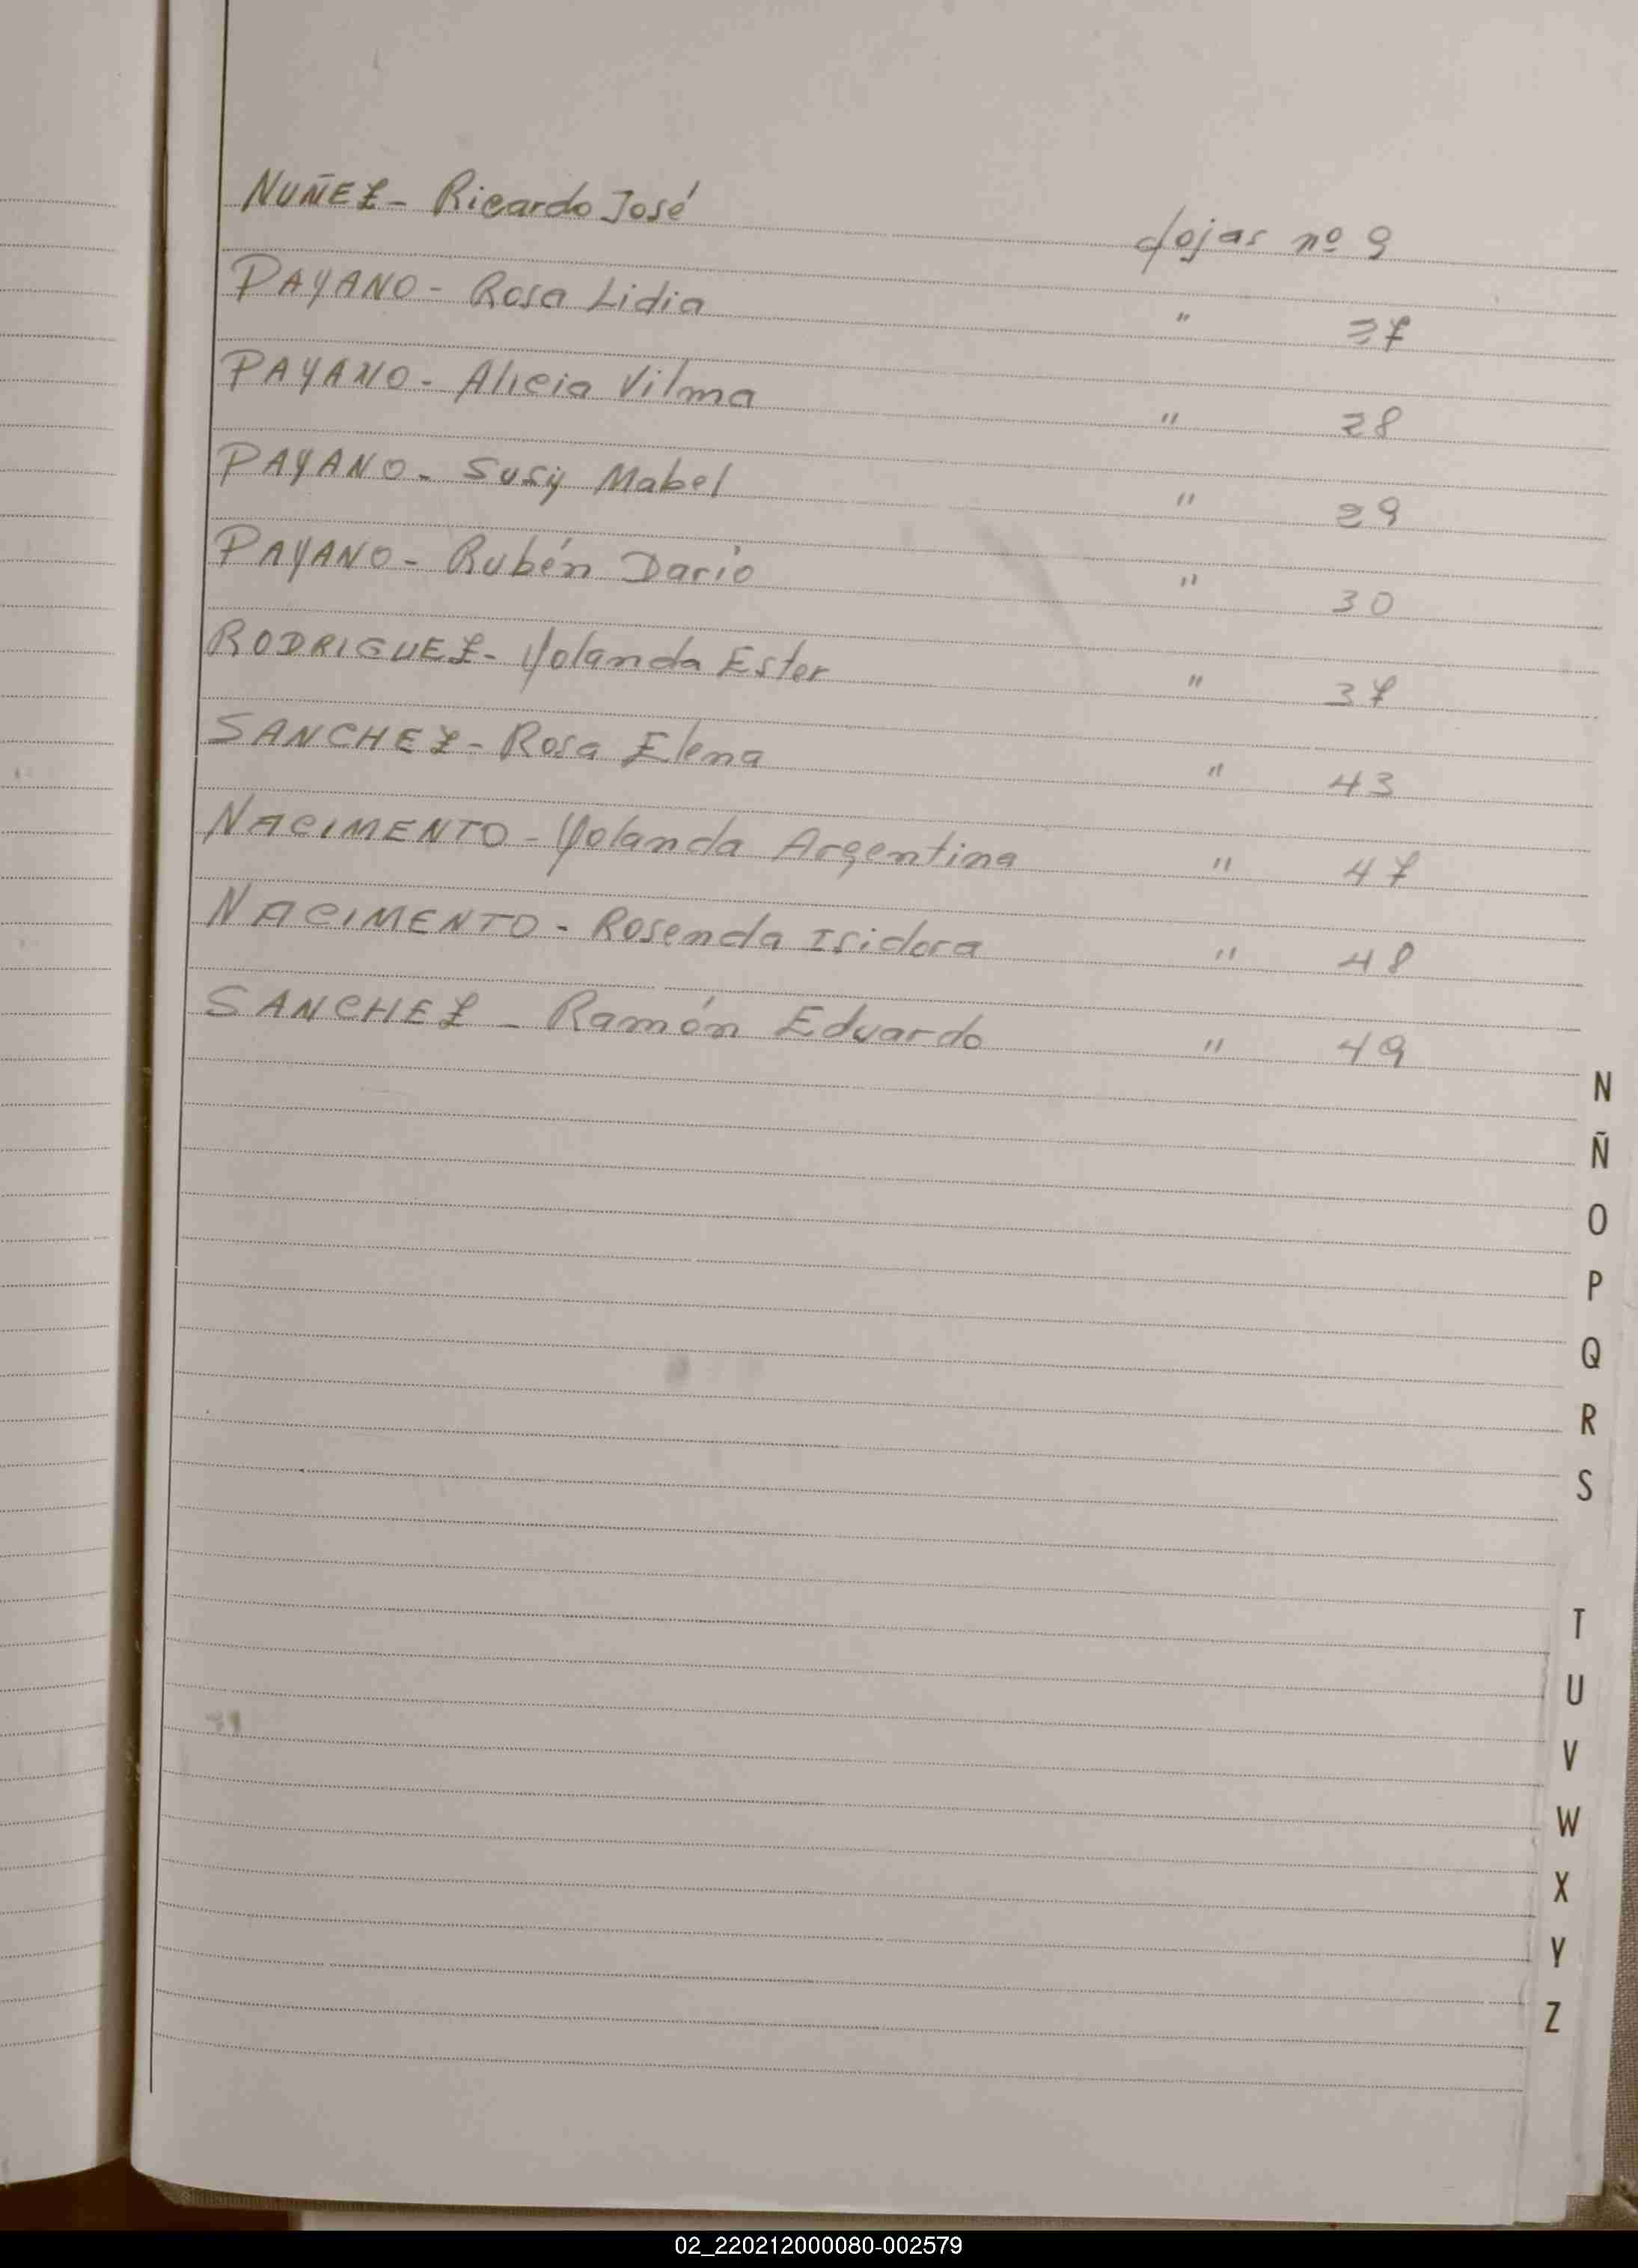 NUÑEZ - Ricardo José fojas nº 9
PAYANO - Rosa Lidia " 27
PAYANO - Alicia Vilma " 28
PAYANO - Susy Mabel " 29
PAYANO - Rubén Darío " 30
RODRIGUEZ - Yolanda Ester " 37
SANCHEZ - Rosa Elena " 43
NACIMENTO - Yolanda Argentina " 47
NACIMENTO - Rosenda Isidora " 48
SANCHEZ - Ramón Eduardo " 49
N
Ñ
O
P
Q
R
S
T
U
V
W
X
Y
Z
02_220212000080-002579